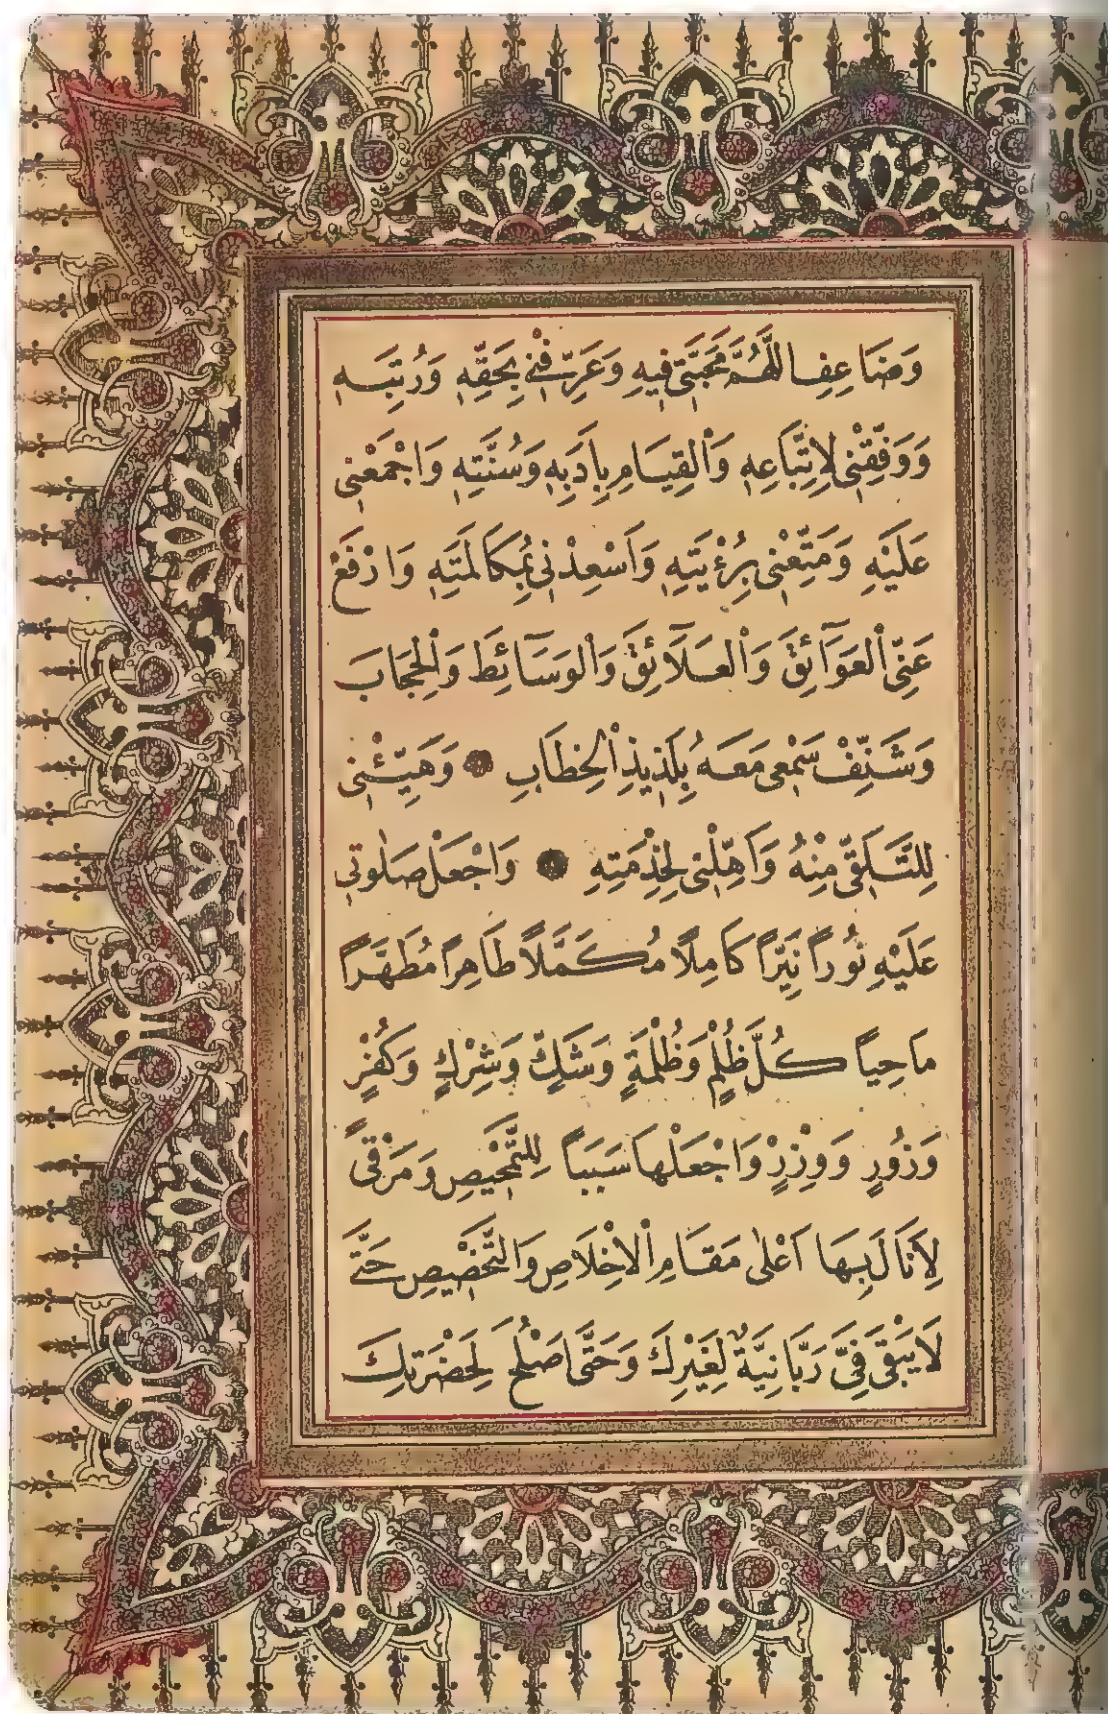 وَضَاعِفِ اللّٰهُمَّ مَحَبَّتِي فِيهِ وَعَرِّفْنِي بِحَقِّهٖ وَرُتَبِهٖ
وَوَفِّقْنِي لِاتِّبَاعِهٖ وَالْقِيَامِ بِاَدَبِهٖ وَسُنَّتِهٖ وَاجْمَعْنِي
عَلَيْهِ وَمَتِّعْنِي بِرُؤْيَتِهٖ وَاَسْعِدْنِي بِمُكَالَمَتِهٖ وَارْفَعْ
عَنِّي الْعَوَآئِقَ وَالْعَلَآئِقَ وَالْوَسَآئِطَ وَالْحِجَابَ
وَشَنِّفْ سَمْعِي مَعَهُ بِلَذِيذِ الْخِطَابِ ۞ وَهَيِّئْنِي
لِلتَّلَقِّي مِنْهُ وَاَهِّلْنِي لِخِذْمَتِهِ ۞ وَاجْعَلْ صَلٰوتِي
عَلَيْهِ نُوراً نَيِّراً كَامِلًا مُكَمَّلاً طَاهِراً مُطَهَّراً
مَاحِياً كُلَّ ظُلْمٍ وَظُلْمَةٍ وَشَكٍّ وَشِرْكٍ وَكُفْرٍ
وَزُورٍ وَوِزْرٍ وَاجْعَلْهَا سَبَباً لِلتَّمْحِيصِ وَمَرْقىً
لِاَنَالَ بِهَا اَعْلٰى مَقَامِ الْاِخْلَاصِ وَالتَّخْصِيصِ حَتَّى
لَا يَبْقَى فِيَّ رَبَّانِيَّةٌ لِغَيْرِكَ وَحَتَّى اَصْلُحَ لِحَضْرَتِكَ